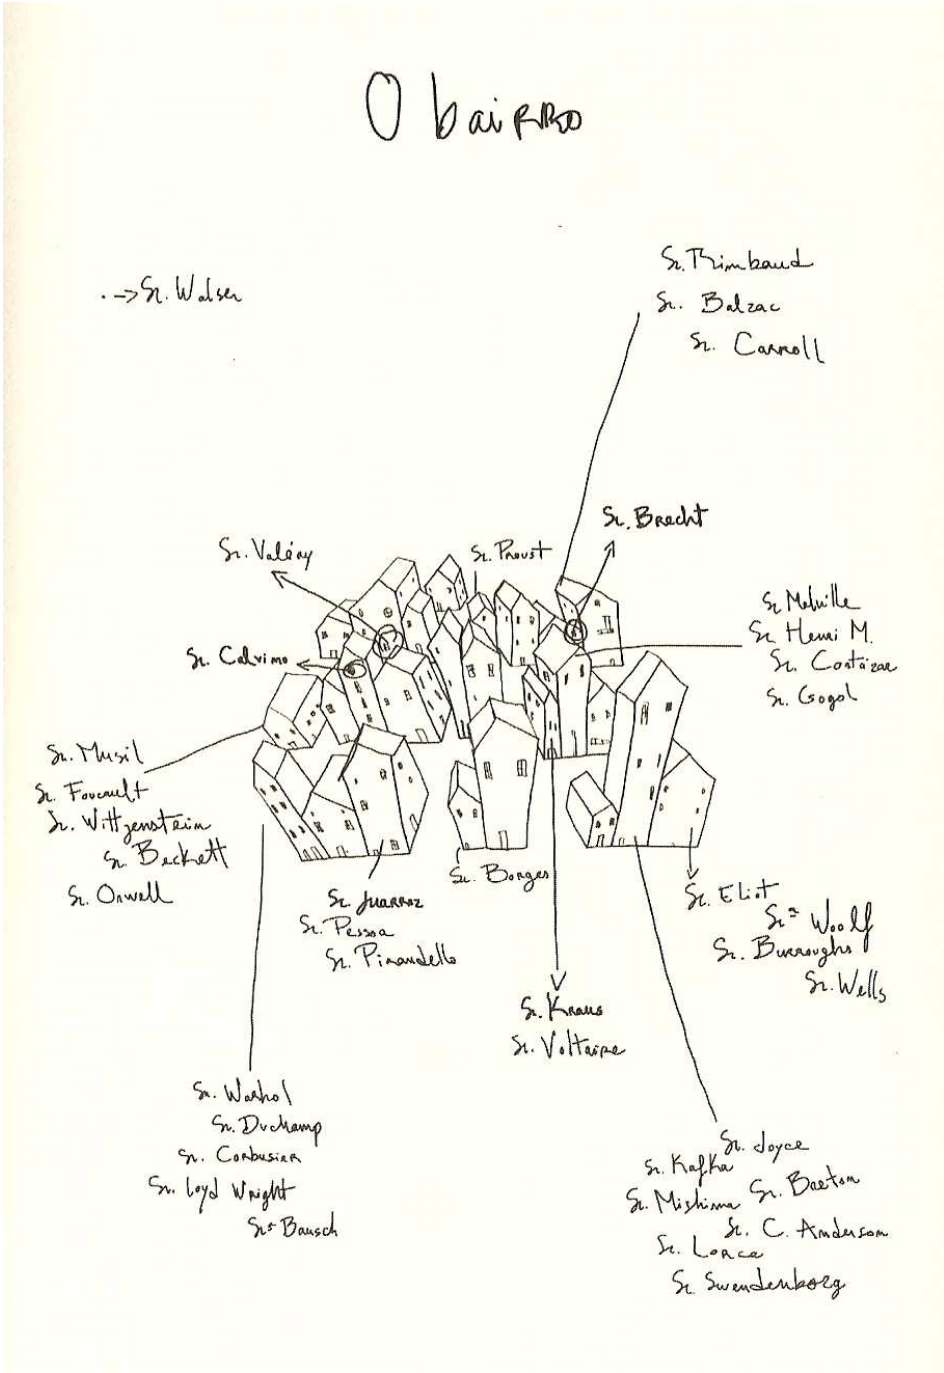 O bairro
Sr. Rimbaud
Sr. Balzac
Sr. Carroll
Sr. Walser
Sr. Brecht
Sr. Valéry
Sr. Proust
Sr. Calvino
Sr. Melville
Sr. Henri M.
Sr. Cortázar
Sr. Gogol
Sr. Musil
Sr. Foucault
Sr. Wittgenstein
Sr. Beckett
Sr. Orwell
Sr. Juarroz
Sr. Pessoa
Sr. Pirandello
Sr. Borges
Sr. Eliot
Sra Woolf
Sr. Burroughs
Sr. Wells
Sr. Kraus
Sr. Voltaire
Sr. Warhol
Sr. Duchamp
Sr. Corbusier
Sr. Loyd Wright
Sra Bausch
Sr. Joyce
Sr. Kafka
Sr. Mishima Sr. Breton
Sr. C. Anderson
Sr. Lorca
Sr. Swendenborg